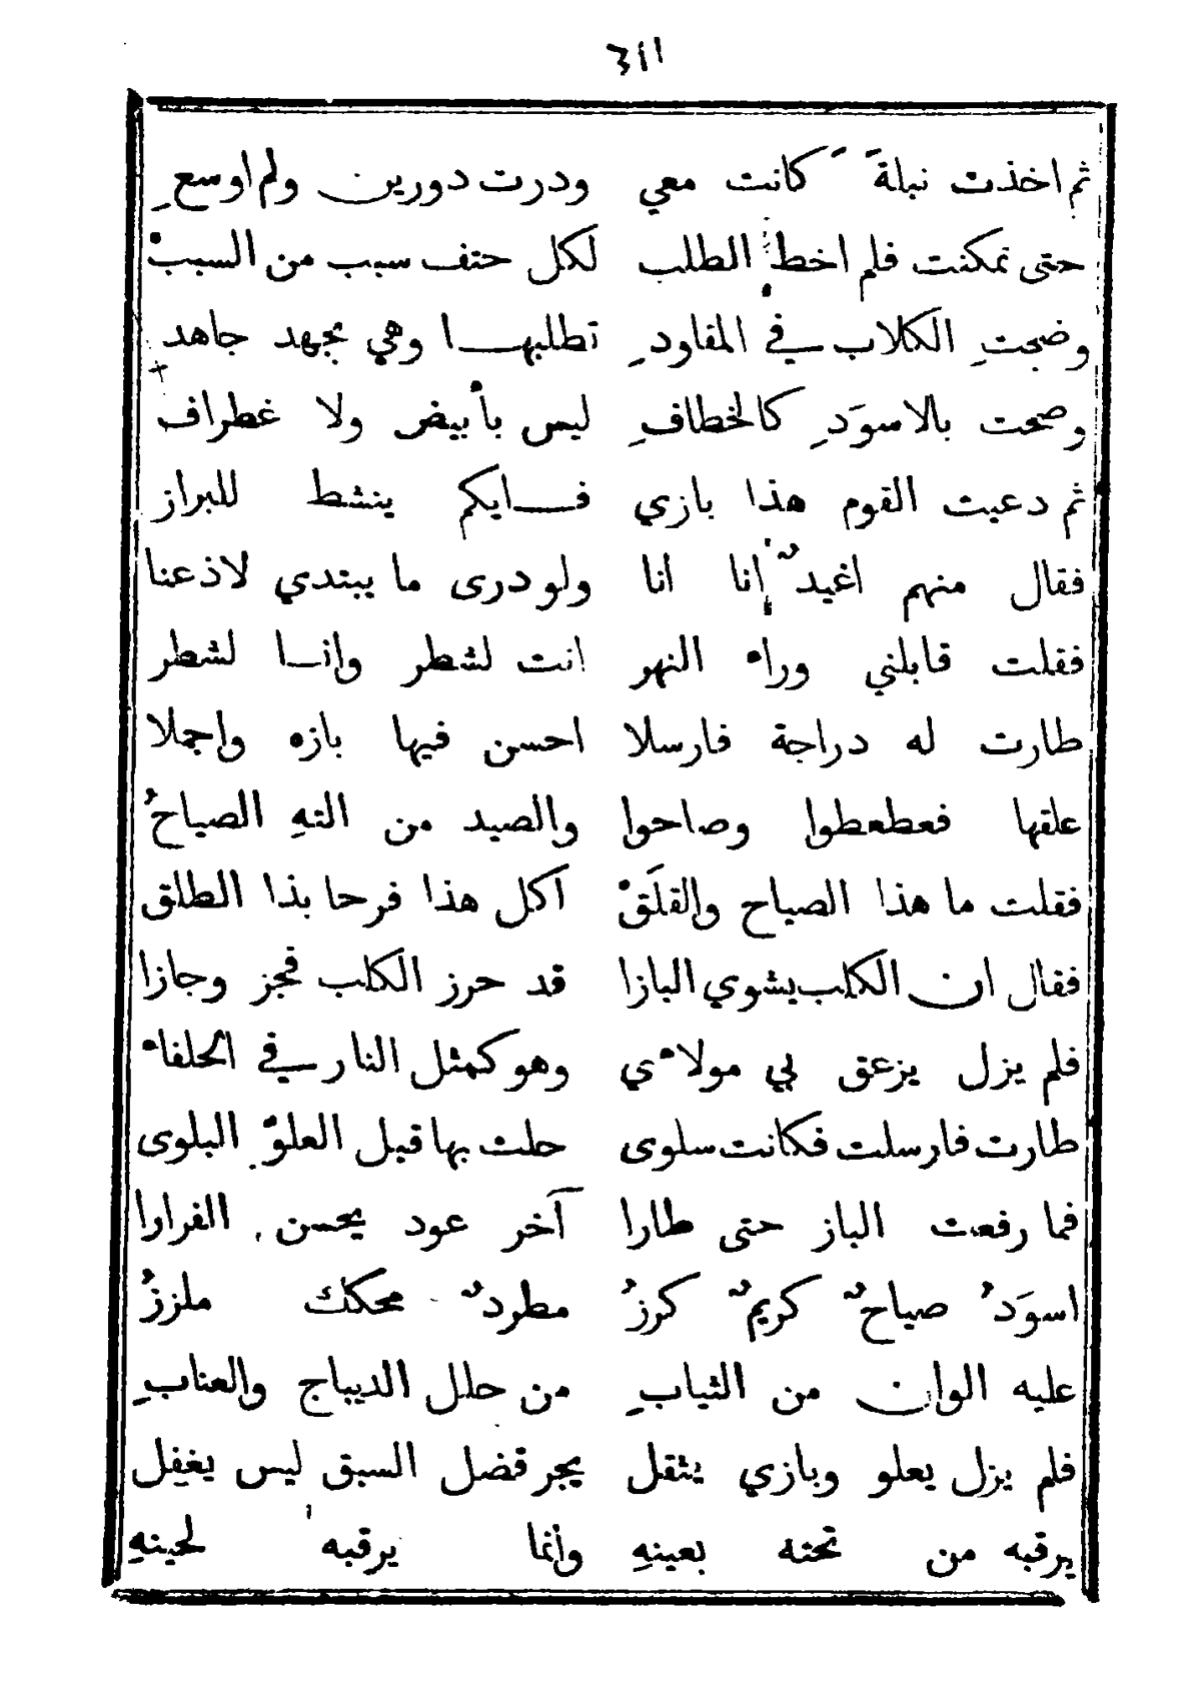 ١١٤
ثم اخذت نبلةً كانت معي ودرت دورين ولم اوسعِ
حتى تمكنت فلم اخطِ الطلب لكل حتف سبب من السببْ
وضجتِ الكلاب في المقاودِ تطلبها وهي بجهد جاهد
وصحت بالاسوَدِ كالخطافِ ليس بأبيض ولا غطراف
ثم دعيت القوم هذا بازي فايكم ينشط للبراز
فقال منهم اغيدٌ انا انا ولو درى ما يبتدي لاذعنا
فقلت قابلني وراء النهر انت لشطر وانا لشطر
طارت له دراجة فارسلا احسن فيها بازه واجملا
علقها فعطعطوا وصاحوا والصيد من التهِ الصياحُ
فقلت ما هذا الصياح والقلَقْ اكل هذا فرحا بذا الطلق
فقال ان الكلب يشوي البازا قد حرز الكلب فجز وجازا
فلم يزل يزعق بي مولاءي وهو كمثل النار في الحلفاء
طارت فارسلت فكانت سلوى حلت بها قبل العلوّ البلوى
فما رفعت الباز حتى طارا آخر عود يحسن الفرارا
اسوَدُ صياحٌ كريمٌ كرزُ مطردٌ محكك ملززُ
عليه الوان من الثيابِ من حلل الديباج والعنابِ
فلم يزل يعلو وبازي يثقل يجر فضل السبق ليس يغفل
يرقبه من تحته بعينهِ وانما يرقبه لحينهِ